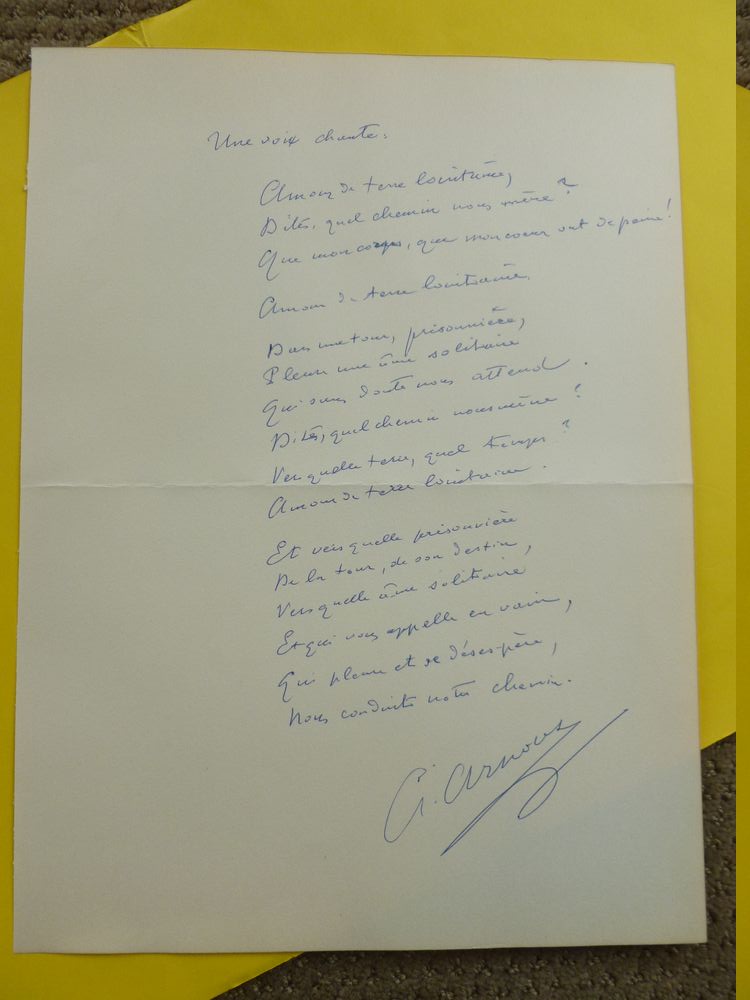 Une voix chante :
Amour de terre lointaine,
Dites, quel chemin nous mène ?
Que mon corps, que mon coeur ont de peine !
Amour de terre lointaine.
Dans une tour, prisonnière,
Pleure une âme solitaire
Qui sans doute nous attend.
Dites, quel chemin nous mène ?
Vers quelle terre, quel temps ?
Amour de terre lointaine.
Et vers quelle prisonnière
De la tour, de son destin,
Vers quelle âme solitaire
Et qui vous appelle en vain,
Qui pleure et se désespère,
Nous conduit notre chemin.
A. Arnoux